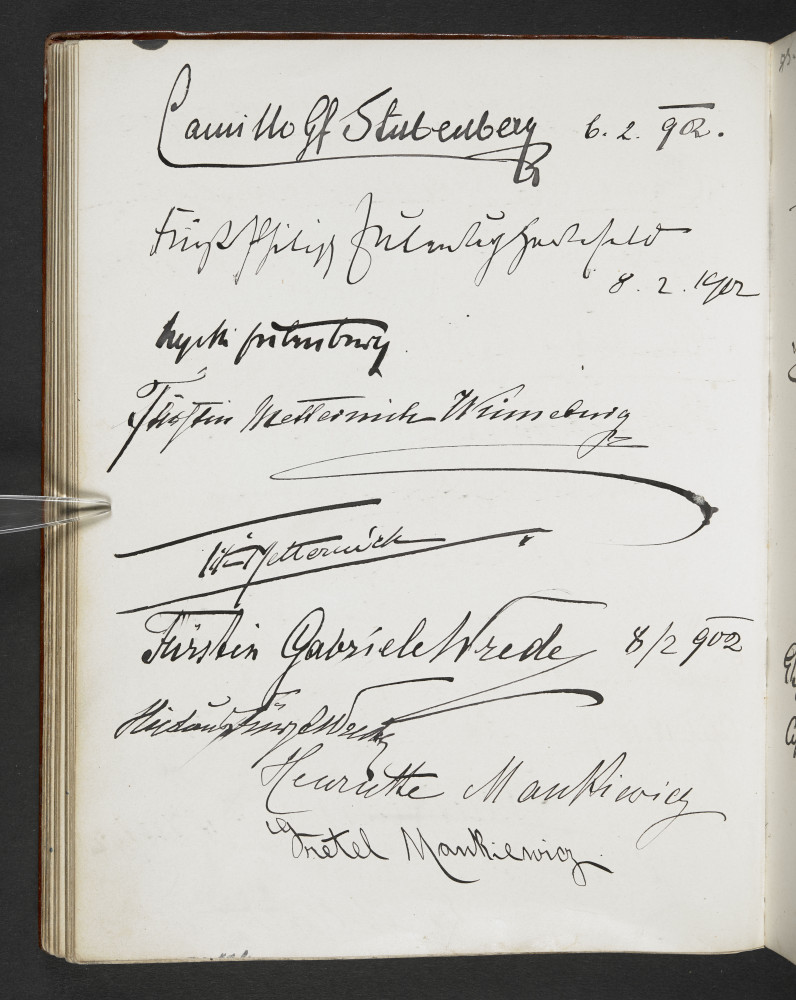 Camillo Gf Stubenberg 6. 2. 902.
Fürst Philipp Eulenburg Hertefeld
8. 2. 1902
Eulenburg
Fürstin Metternich Winneburg
Metternich
Fürstin Gabriele Wrede 8/2 902
Fürst Wrede
Henriette Mankiewicz
Gretel Mankiewicz